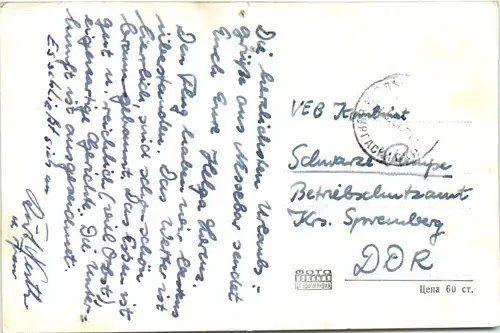 Die herzlichsten Urlaubs-
grüße aus Nessebar sendet
Euch Eure Helga
Den Flug haben wir bestens
überstanden. Das Wetter ist
herrlich, sind schon schön
braun gebrannt. Das Essen ist
gut u. reichlich (viel Obst,)
eigenartige Gerichte. Die Unter-
kunft ist ausgezeichnet.
Es schließt sich an
VEB Kombinat
Schwarze Pumpe
Betriebsschutzamt
Krs. Spremberg
DDR
ФОТО
Цена 60 ст.